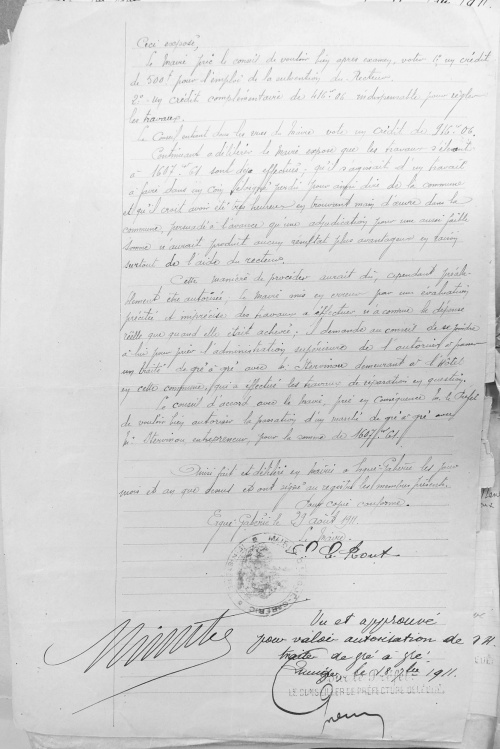 Ceci exposé,
Le Maire prie le conseil de vouloir bien après examen, voter 1° un crédit
de 500f pour l'emploi de la subvention du Recteur.
2° un crédit complémentaire de 415f 04 indispensable pour régler
les travaux.
Le Conseil entrant dans les vues du Maire vote un crédit de 915f 04.
Continuant à délibérer le Maire expose que les travaux s'élevant
à 1607f 61 sont déjà effectués; qu'il s'agissait d'un travail
à faire dans un coin perdu pour ainsi dire de la commune
et qu'il croit avoir été très heureux en trouvant main d'œuvre dans la
commune, persuadé à l'avance qu'une adjudication pour une aussi faible
somme n'aurait produit aucun résultat plus avantageux en raison
surtout de l'aide du recteur.
Cette manière de procéder aurait dû, cependant, préala-
blement être autorisée, le Maire mis en erreur par une évaluation
précitée et imprécise des travaux à effectuer n'a connu la dépense
réelle que quand elle était achevée; il demande au conseil de se joindre
à lui pour prier l'administration supérieure de l'autoriser à passer
un traité de gré à gré avec Mr demeurant à l'Hôtel
en cette commune, qui a effectué les travaux de réparation en question.
Le conseil d'accord avec le Maire, prie en conséquence M. le Préfet
de vouloir bien autoriser la passation d'un marché de gré à gré avec
Mr entrepreneur, pour la somme de 1607f 61
Ainsi fait et délibéré en mairie à Ergué-Gabéric les jour
mois et an que dessus et ont signé au registre les membres présents.
Pour copie conforme.
Ergué-Gabéric le 29 août 1911.
Le Maire.
Le Rout
Minute
Vu et approuvé
pour valoir autorisation de
traiter de gré à gré.
Quimper, le 18 1911.
LE CONSEILLER DE PRÉFECTURE DÉLÉGUÉ